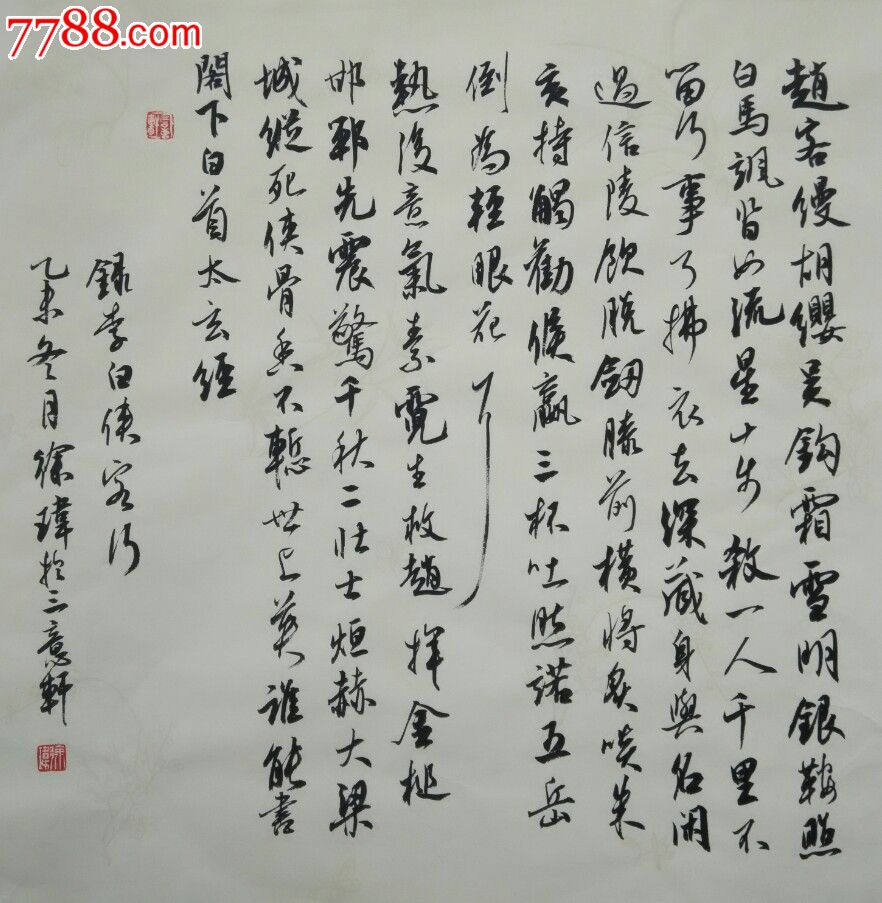 7788.com
趙客縵胡纓吳鉤霜雪明銀鞍照
白馬颯沓如流星十步殺一人千里不
留行事了拂衣去深藏身與名閑
過信陵飲脫劍膝前橫將炙啖朱
亥持觴勸侯嬴三杯吐然諾五岳
倒為輕眼花耳
熱後意氣素霓生救趙揮金槌
邯鄲先震驚千秋二壯士烜赫大梁
城縱死俠骨香不慙世上英誰能書
閣下白首太玄經
錄李白俠客行
乙未冬月徐瑋於三意軒